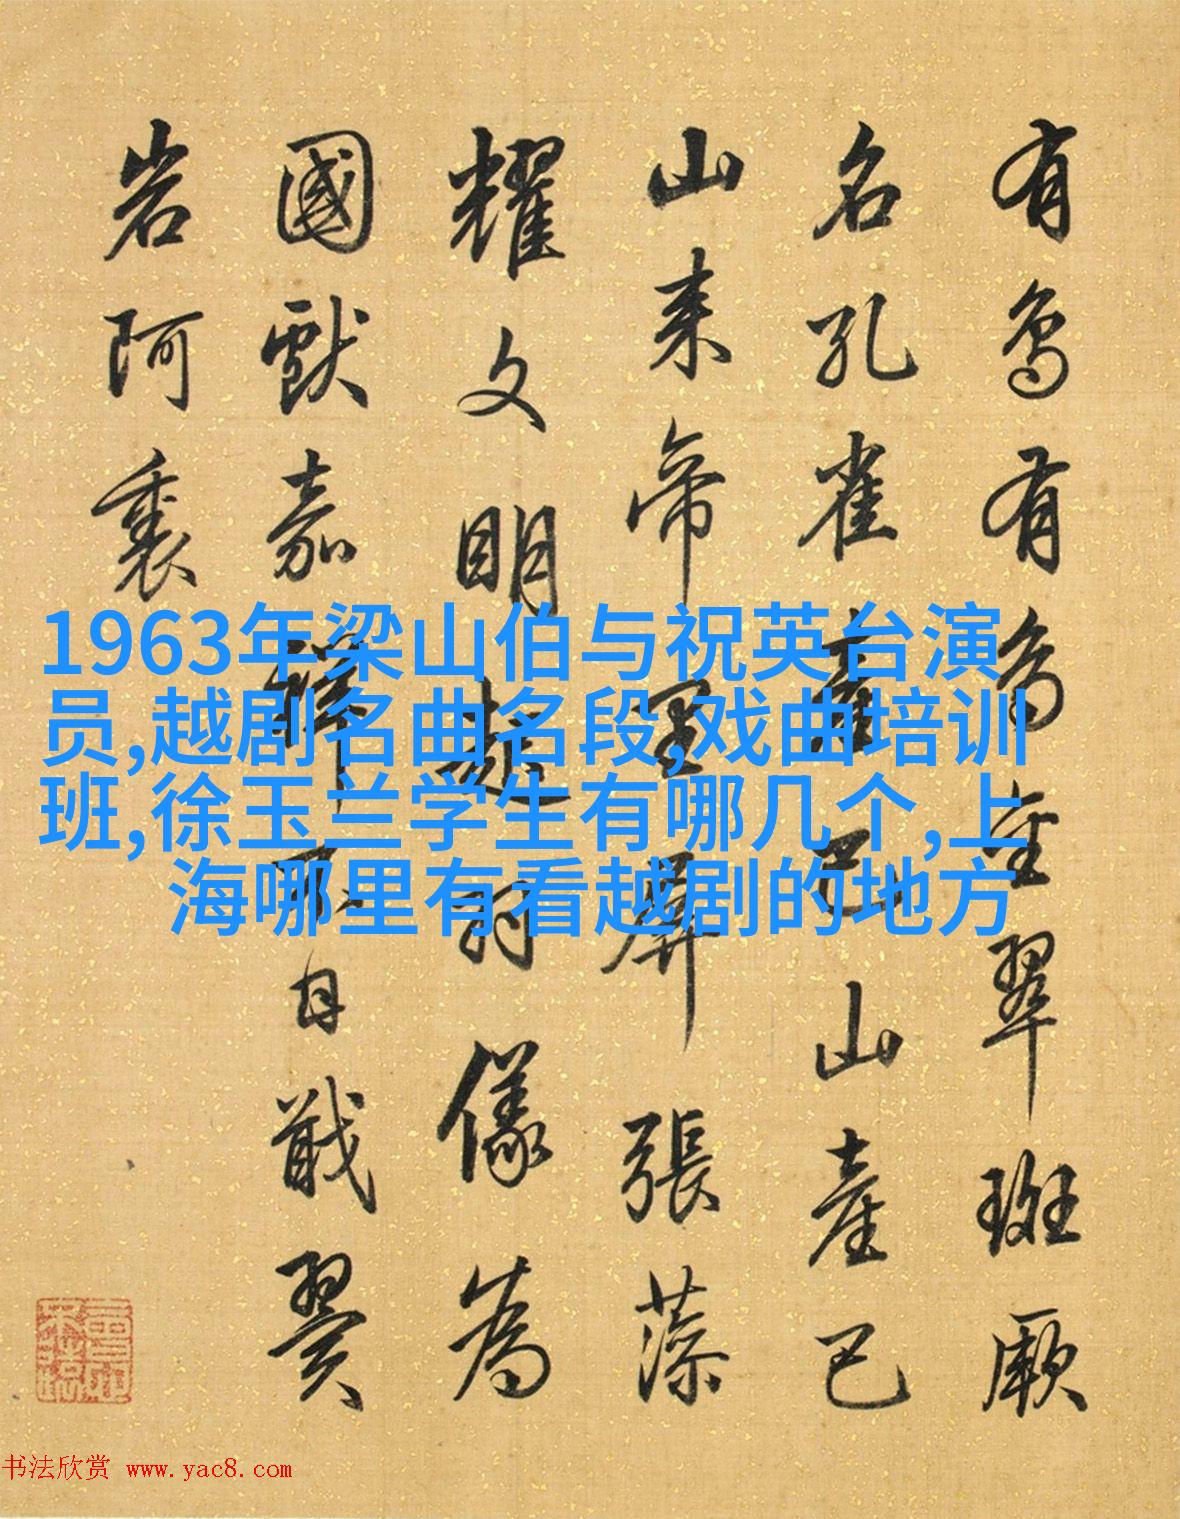 有鳥有鳥金翠斑厥
名孔雀產巴山產巴
山来帝里屏張藻
耀文明起對儀為
國獻嘉自戢翼
岩阿裏
1963年梁山伯与祝英台演
员,越剧名曲名段,戏曲培训
班,徐玉兰学生有哪几个,上
海哪里有看越剧的地方
书法欣赏 www.yac8.com